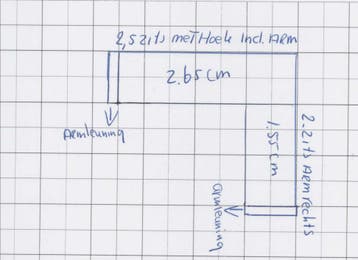 2,5 zits met Hoek Incl. Arm
2.65 cm
Armleuning
2.2 its Arm rechts
1.55 cm
armleuning